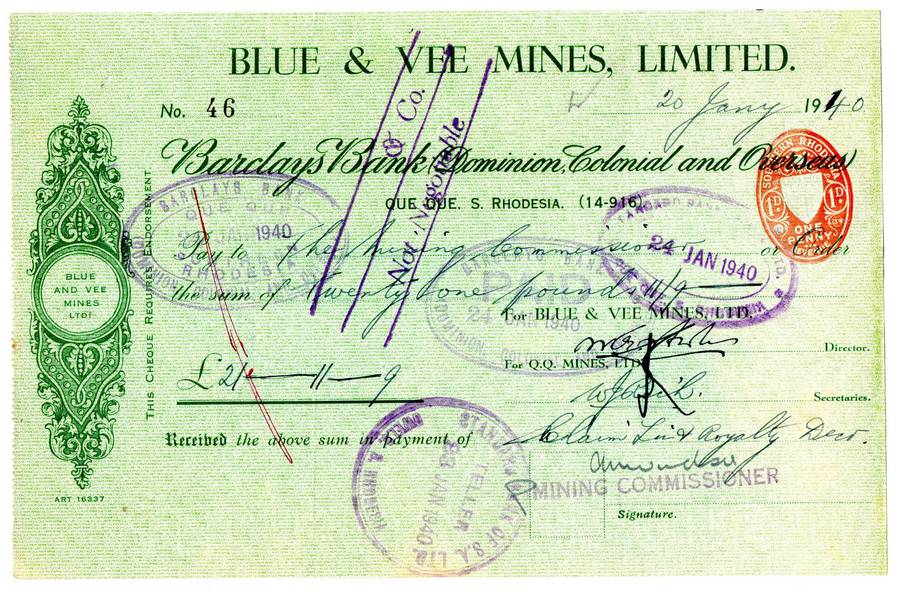 BLUE & VEE MINES, LIMITED.
No. 46
20 Jany 1940
Barclays Bank (Dominion, Colonial and Overseas)
QUE QUE, S. RHODESIA. (14-916)
& Co.
Not Negotiable
SOUTHERN RHODESIA
1D 1D
ONE PENNY
BARCLAYS BANK
QUE QUE
JAN 1940
RHODESIA
Pay to The Mining Commissioner or Order
STANDARD BANK
24 JAN 1940
the sum of Twenty one pound 11/9
PAID
24 JAN 1940
For BLUE & VEE MINES, LTD.
Director.
For Q.Q. MINES, LTD.
Secretaries.
£21—11—9
Received the above sum in payment of Claim Lic & Royalty Decr.
MINING COMMISSIONER
Signature.
STANDARD BANK OF S.A. LTD.
TELLER
23 JAN 1940
BLUE
AND VEE
MINES
LTD.
This Cheque Requires Endorsement
ART 16337